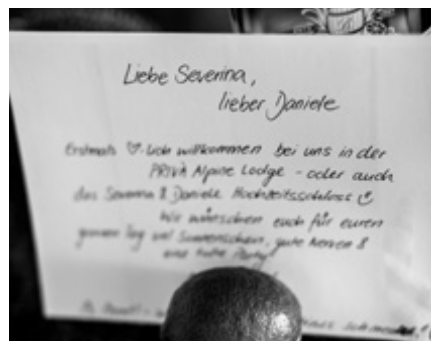 Liebe Severina,
lieber Daniele
Erstmals ♡-lich willkommen bei uns in der
PRIVÀ Alpine Lodge - oder auch
das Severina & Daniele Hochzeitsschloss ☺
Wir wünschen euch für euren
ganzen Tag viel Sonnenschein, gute Nerven &
eine tolle Party!